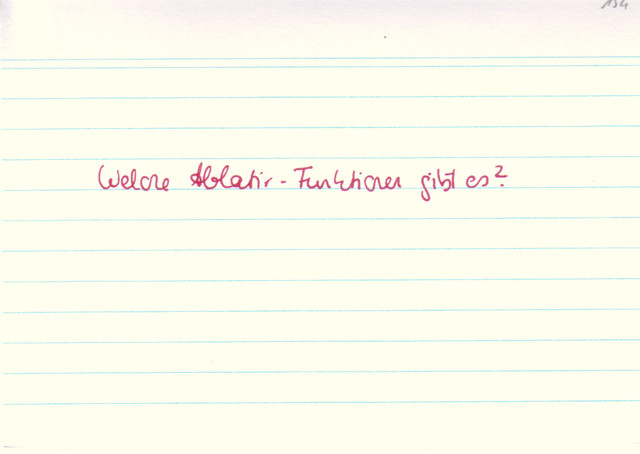 134
Welche Ablativ-Funktionen gibt es?